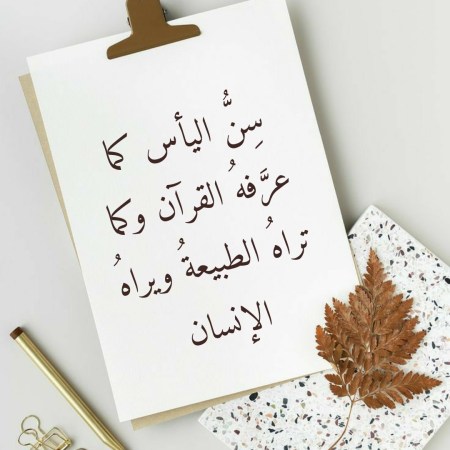 سِنُّ اليأس كما
عرَّفهُ القرآن وكما
تراهُ الطبيعةُ ويراهُ
الإنسان